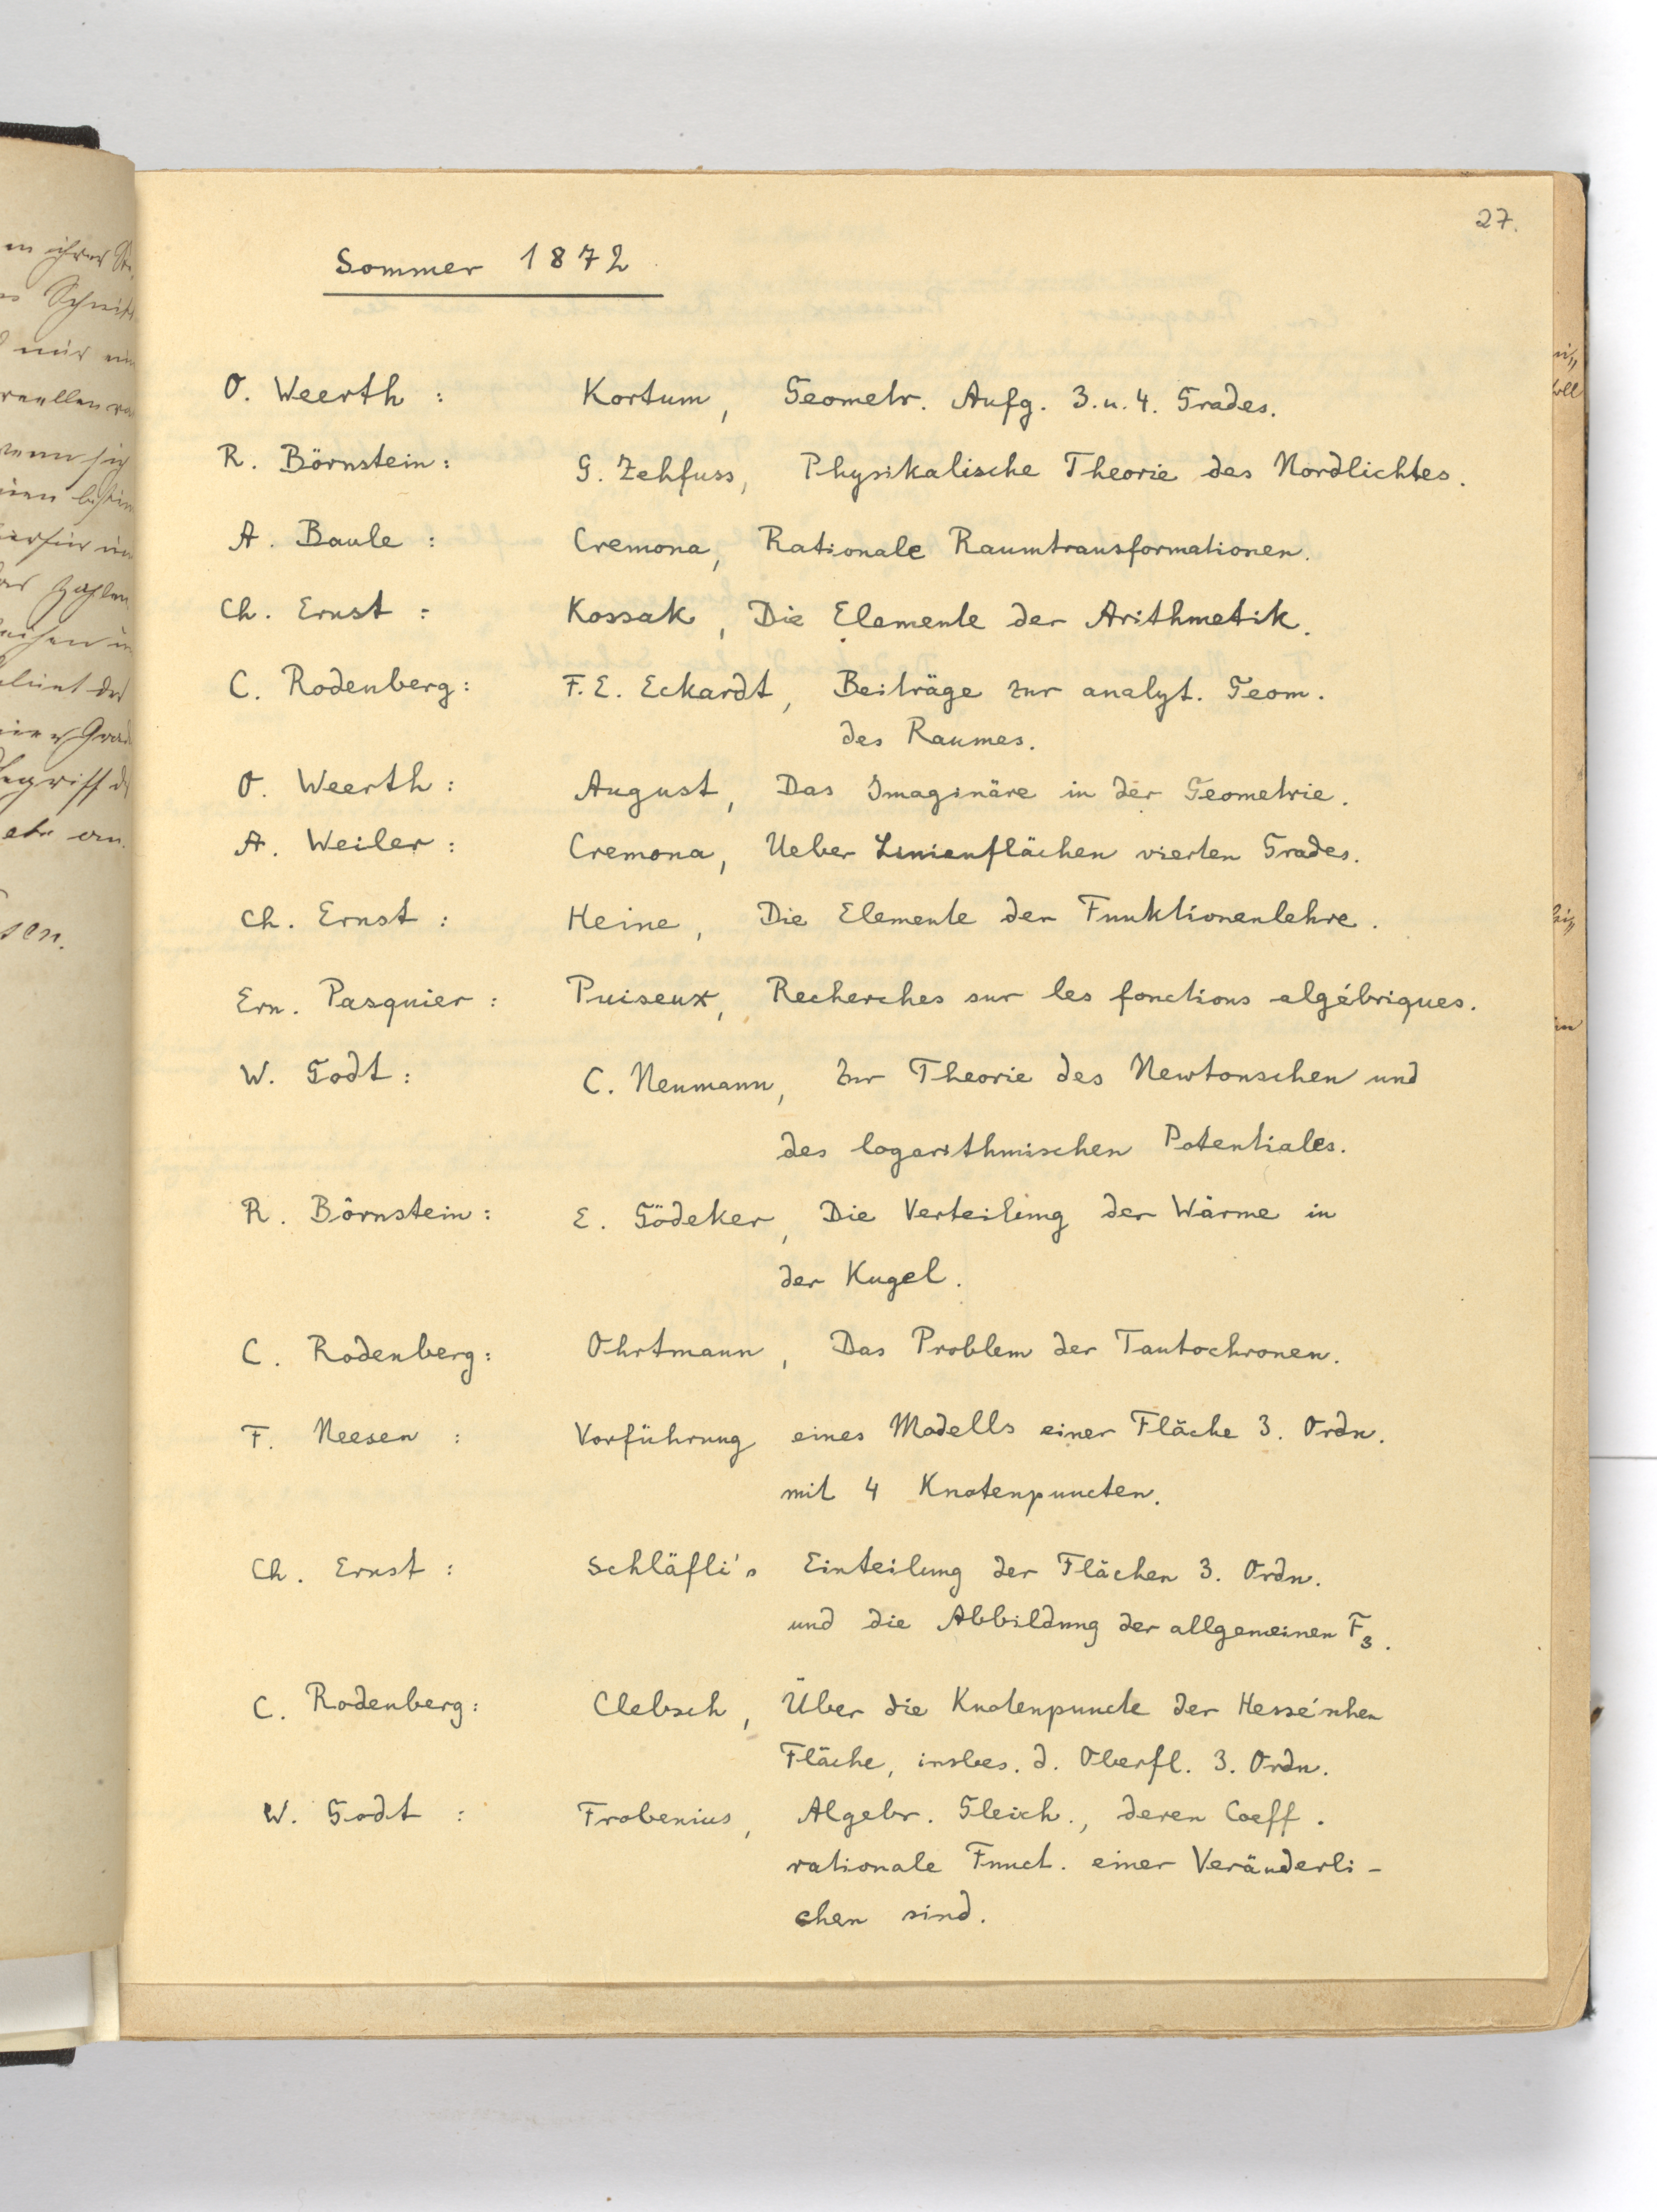 27.
Sommer 1872
O. Weerth : Kortum, Geometr. Aufg. 3. u. 4. Grades.
R. Börnstein : G. Zehfuss, Physikalische Theorie des Nordlichtes.
A. Baule : Cremona, Rationale Raumtransformationen.
Ch. Ernst : Kossak, Die Elemente der Arithmetik.
C. Rodenberg : F. E. Eckardt, Beiträge zur analyt. Geom.
des Raumes.
O. Weerth : August, Das Imaginäre in der Geometrie.
A. Weiler : Cremona, Ueber Linienflächen vierten Grades.
Ch. Ernst : Heine, Die Elemente der Funktionenlehre.
Ern. Pasquier : Puiseux, Recherches sur les fonctions algébriques.
W. Godt : C. Neumann, Zur Theorie des Newtonschen und
des logarithmischen Potentiales.
R. Börnstein : E. Gödeker, Die Verteilung der Wärme in
der Kugel.
C. Rodenberg : Ohrtmann, Das Problem der Tautochronen.
F. Neesen : Vorführung eines Modells einer Fläche 3. Ordn.
mit 4 Knotenpuncten.
Ch. Ernst : Schläfli's Einteilung der Flächen 3. Ordn.
und die Abbildung der allgemeinen F₃.
C. Rodenberg : Clebsch, Über die Knotenpuncte der Hesse'schen
Fläche, insbes. d. Oberfl. 3. Ordn.
W. Godt : Frobenius, Algebr. Gleich., deren Coeff.
rationale Funct. einer Veränderli-
chen sind.